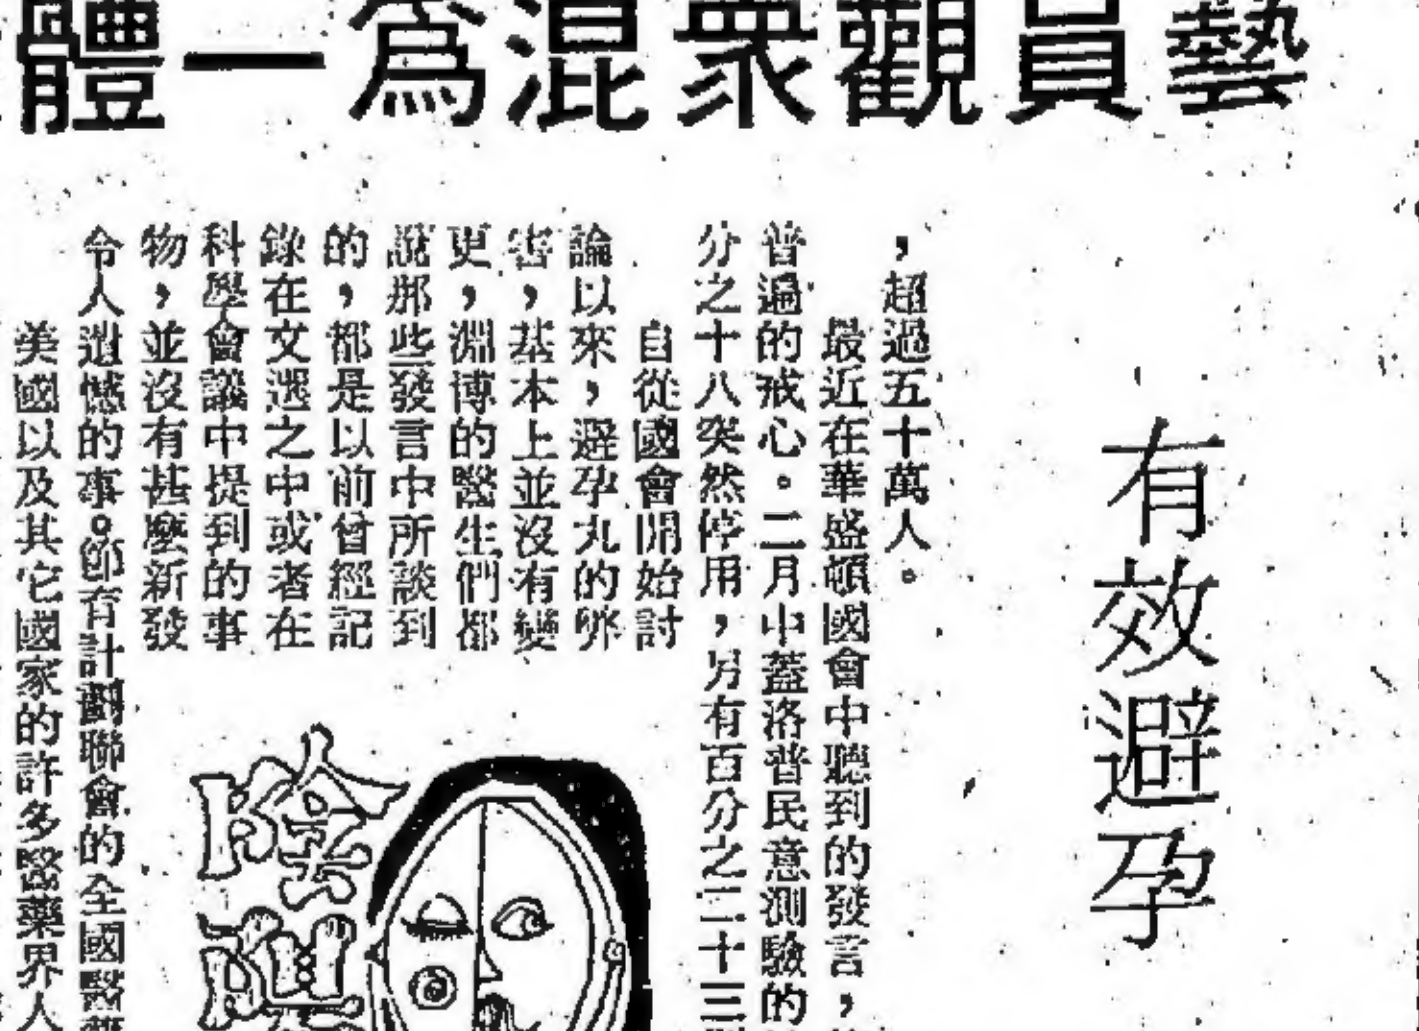 藝員觀衆混為一體
有效避孕
，超過五十萬人。
最近在華盛頓國會中聽到的發言，
普遍的戒心。二月中蓋洛普民意測驗的
分之十八突然停用，另有百分之二十三
自從國會開始討
論以來，避孕丸的弊
害，基本上並沒有變
更，淵博的醫生們都
說那些發言中所談到
的，都是以前曾經記
錄在文選之中或者在
科學會議中提到的事
物，並沒有甚麼新發
令人遺憾的事。節育計劃聯會的全國醫藥
美國以及其它國家的許多醫藥界人
陰陽